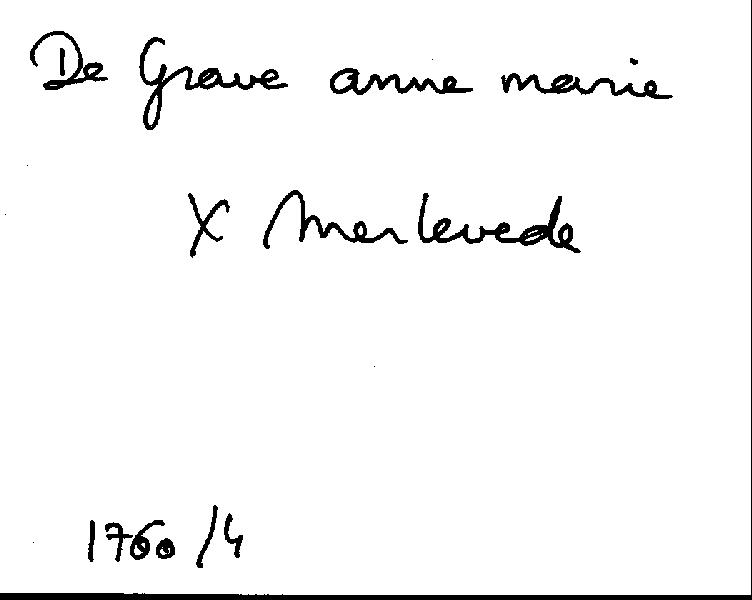 De Grave anne marie
X Merlevede
1760 /4